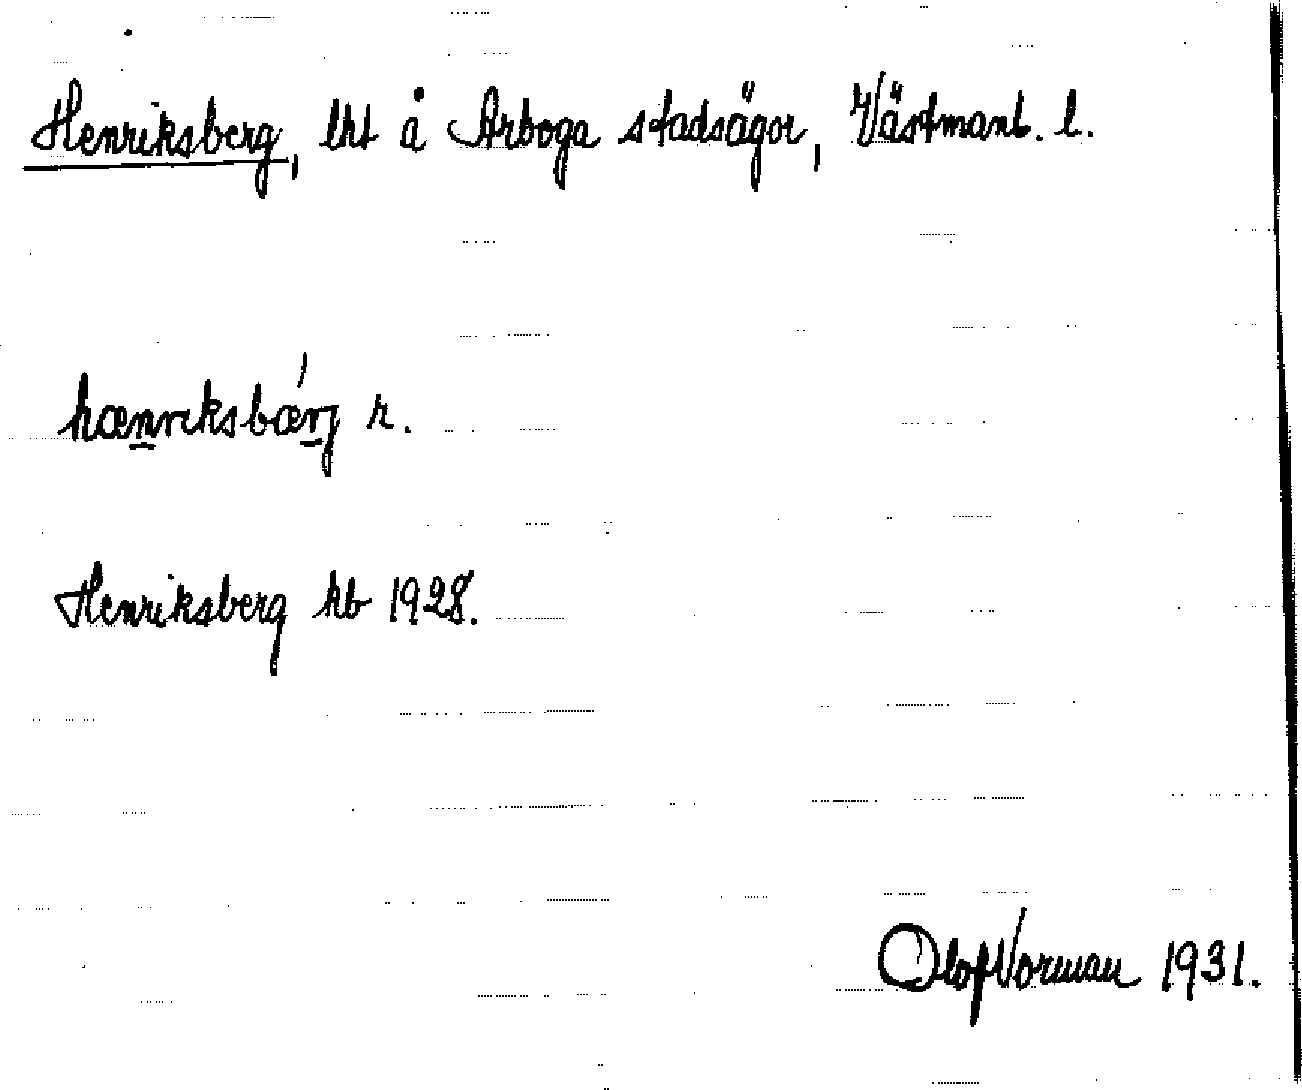 Henriksberg, lht å Arboga stadsägor, Västmanl. l.
hænriksbærj r.
Henriksberg kb 1928.
Olof Vorman 1931.